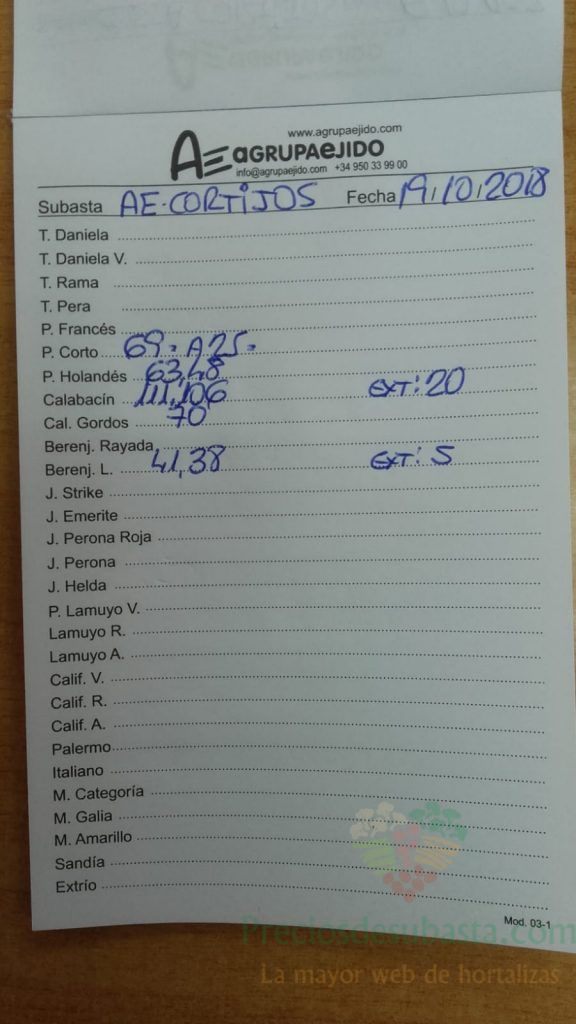 www.agrupaejido.com
AE AGRUPAEJIDO
info@agrupaejido.com +34 950 33 99 00
Subasta AE·CORTIJOS Fecha 19/10/2018
T. Daniela
T. Daniela V.
T. Rama
T. Pera
P. Francés
P. Corto 69 - A25 -
P. Holandés 63,48
Calabacín 111,106 EXT: 20
Cal. Gordos 70
Berenj. Rayada
Berenj. L. 41,38 EXT: 5
J. Strike
J. Emerite
J. Perona Roja
J. Perona
J. Helda
P. Lamuyo V.
Lamuyo R.
Lamuyo A.
Calif. V.
Calif. R.
Calif. A.
Palermo
Italiano
M. Categoría
M. Galia
M. Amarillo
Sandía
Extrío
Mod. 03-1
Preciosdesubasta.com
La mayor web de hortalizas